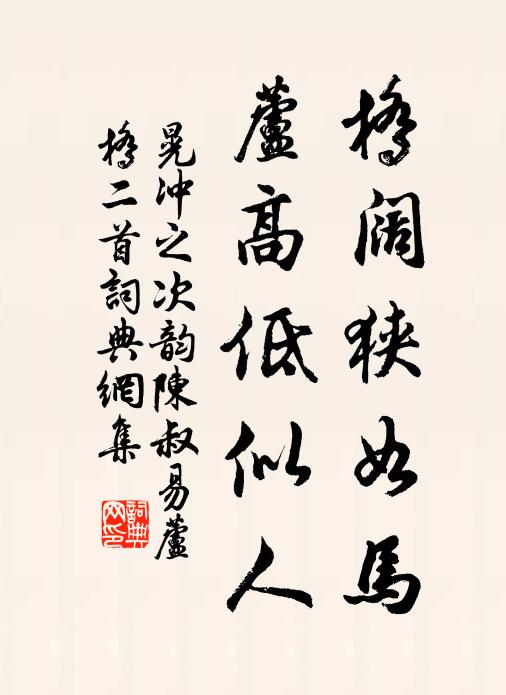 橋阔狹如馬
蘆高低似人
晃冲之次韵陳叔易蘆
橋二首詞典網集
詞典
网印